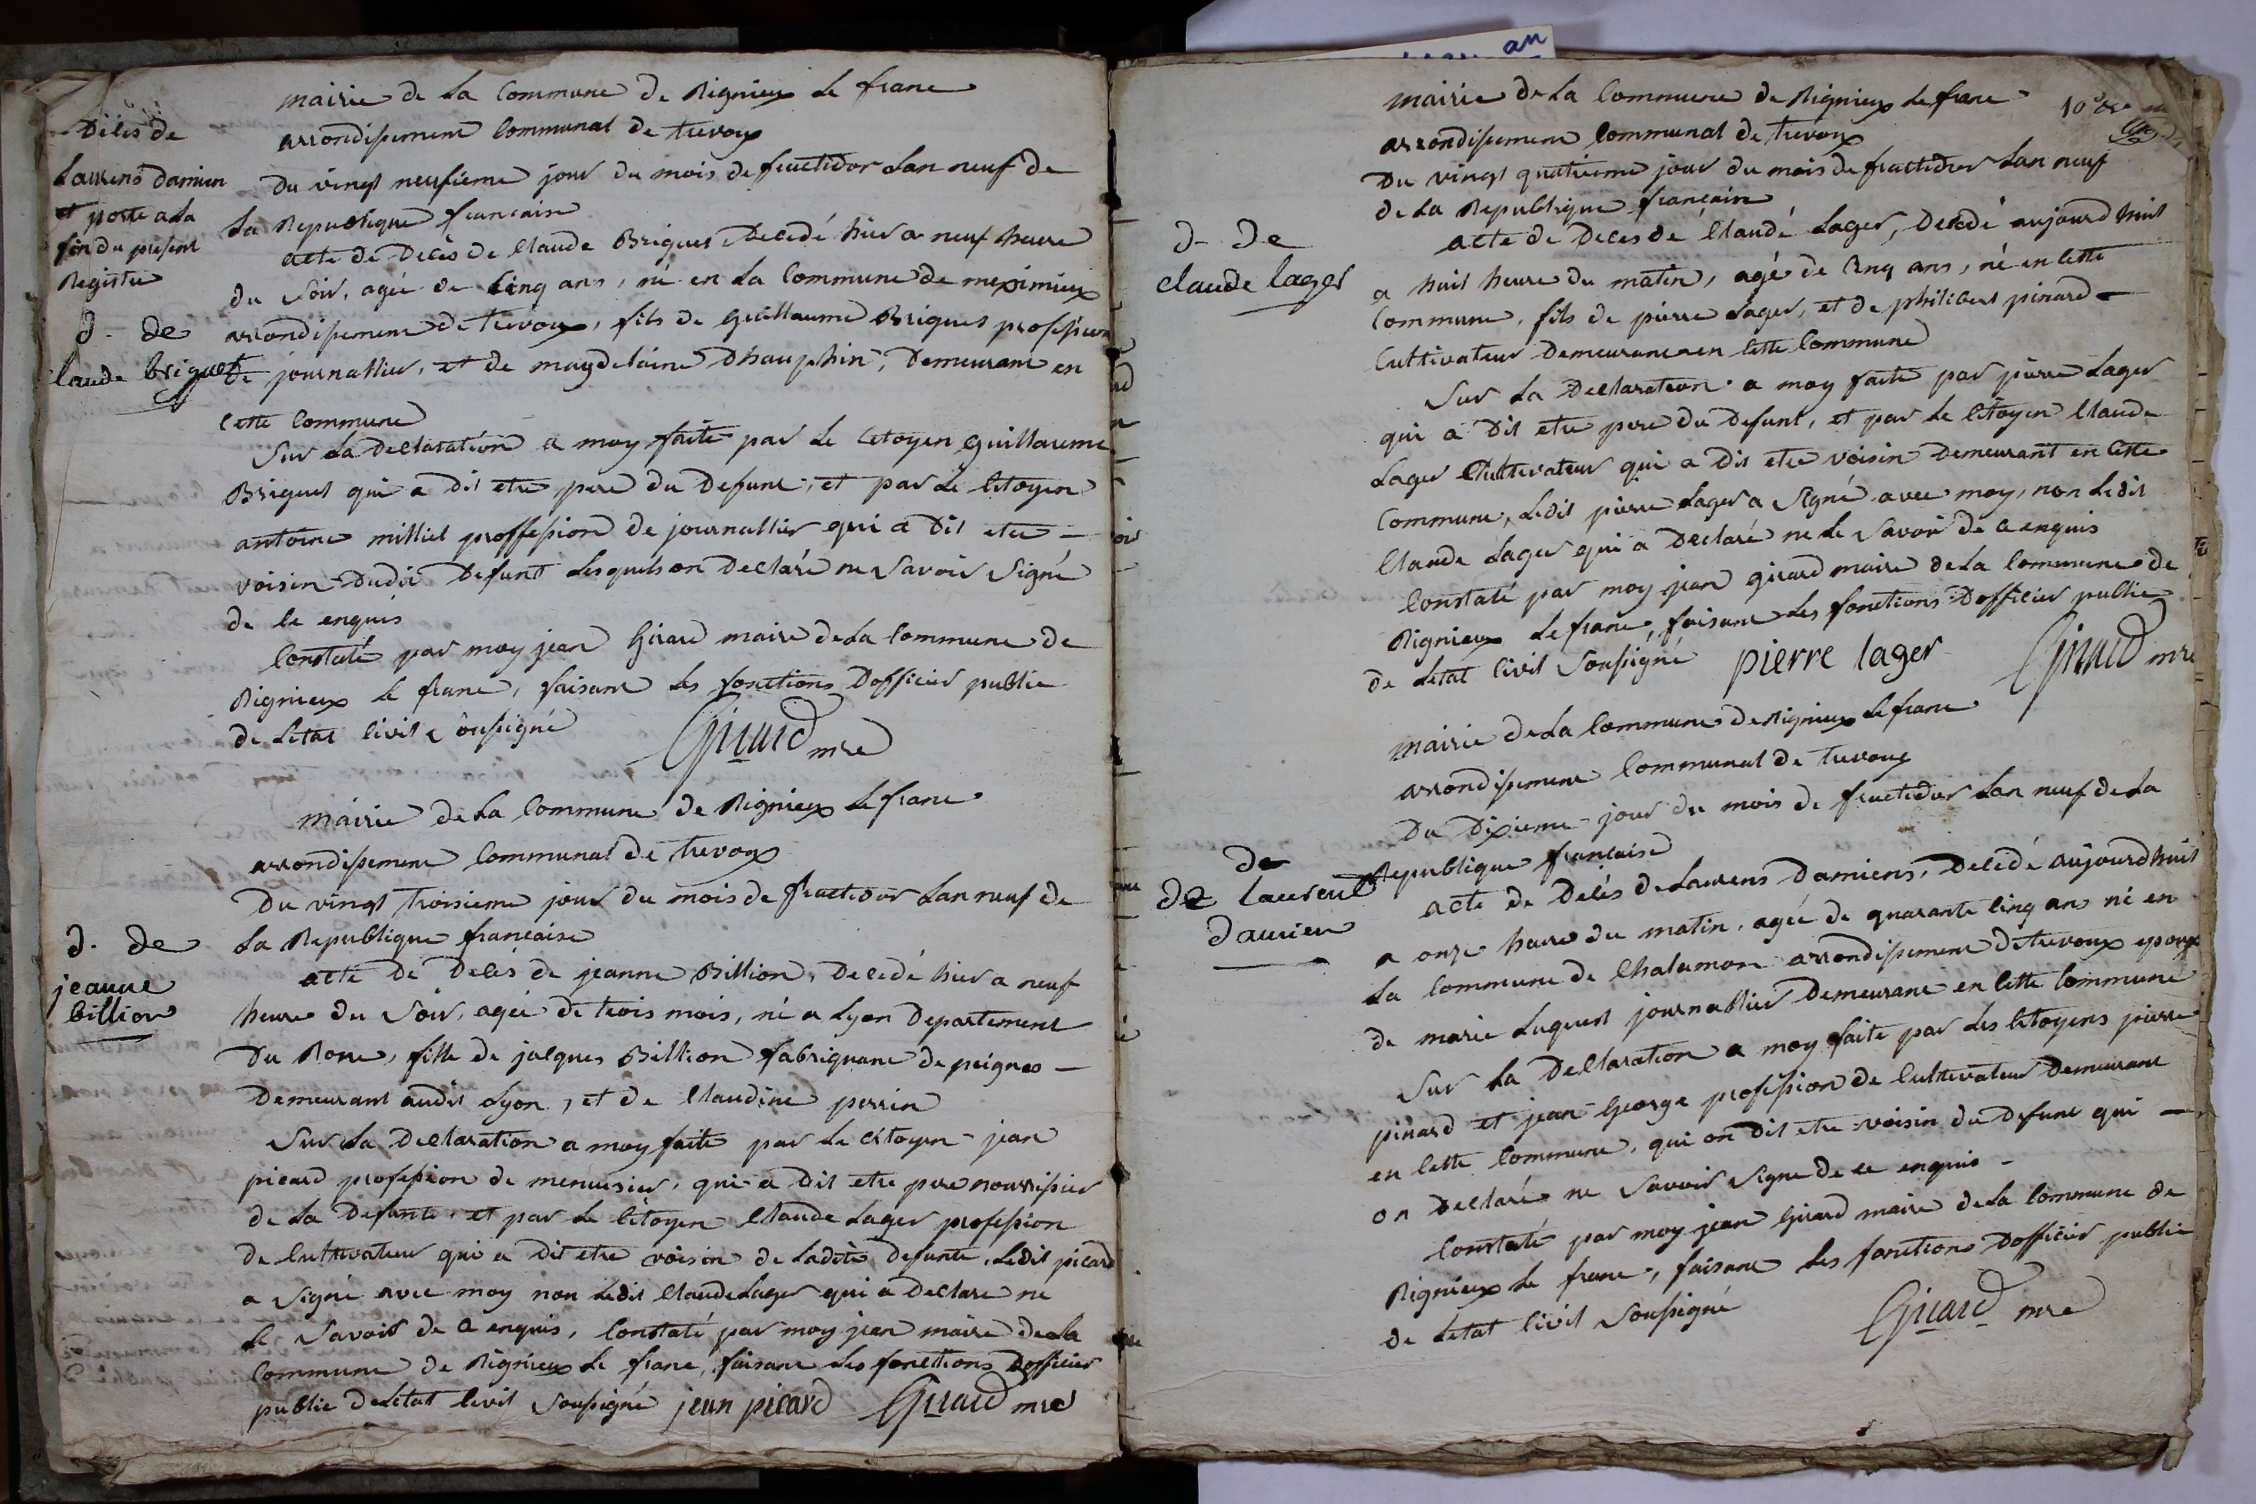 mairie de La Commune de Rignieux Le franc
arrondissement Communal de trevoux
Décés de
Laurens damien
et porté a La
fin du présent
Registre
Du vingt neufieme jour du mois de fructidor Lan neuf de
La Republique francaise
acte de Décès de Claude Briquet Decedé hier a neuf heure
du Soir, agée de Cinq ans, né en La Commune de meximieux
d. de
laude briquet
arrondissement de trevoux, fils de Guillaume Briquet profession
De journallier, et de magdelaine Dhauphin, Demeurant en
Cette Commune
Sur La Declaration a moy faite par Le Citoyen Guillaume
Briquet qui a Dit etre pere du Defunt, et par Le Citoyen
antoine milliet proffession de journallier qui a Dit etre
voisin Dudit Defunt Lesquels on Declaré ne Savoir Signé
de Ce enquis
Constaté par moy jean Girard maire de La Commune de
Rignieux Le franc, faisant Les fonctions Dofficier public
de Letat Civil Soussigné Girard mre
mairie de La Commune de Rignieux Le franc
arrondissement Communal de trevoux
Du vingt troisieme jour du mois de fructidor Lan neuf de
La Republique francaise
d. de
jeanne
billion
acte De Décés de jeanne Billion, Decedé hier a neuf
heure du Soir, agée de trois mois, né a Lyon Departement
Du Rone, fille de jacques Billion fabriquant de peignes
Demeurant audit Lyon, et de Claudine perrin
Sur La Declaration a moy faite par Le Citoyen jean
picard profession de menuisier, qui a Dit etre pere nourrissier
de La Defunte, et par Le Citoyen Claude Lager profession
de Cultivateur qui a dit etre voisin de Ladite Defunte, Ledit picard
a Signé avec moy non Ledit Claude Lager qui a Declaré ne
Le Savoir de Ce enquis, Constaté par moy jean maire de La
Commune de Rignieux Le franc, faisant Les fonctions Dofficier
public de Letat Civil Soussigné jean picard Girard mre
an
mairie de La Commune de Rignieux Le franc
arrondissement Communal de trevoux
Du vingt quatrieme jour du mois de fructidor Lan neuf
de La Republique francaise
d. de
claude lager
acte de Décés de Claude Lager, Decedé aujourdhuit
a huit heure du matin, agé de Cinq ans, né en Cette
Commune, fils de pierre Lager, et de philibert pinard
Cultivateur Demeurant en Cette Commune
Sur La Declaration a moy faite par pierre Lager
qui a Dit etre pere du Defunt, et par Le Citoyen Claude
Lager Cultivateur qui a Dit etre voisin Demeurant en Cette
Commune, Ledit pierre Lager a Signé avec moy, non Ledit
Claude Lager qui a Declaré ne Le Savoir de Ce enquis
Constaté par moy jean girard maire de La Commune de
Rignieux Le franc, faisant Les fonctions Dofficier public
de Letat Civil Soussigné pierre lager Girard mre
mairie de La Commune de Rignieux Le franc
arrondissement Communal de trevoux
Du Dixieme jour du mois de fructidor Lan neuf de La
Republique francaise
de
de laurent
damien
acte de Décés de Laurens Damiens, Decedé aujourdhuit
a onze heure du matin, agée de quarante Cinq ans né en
La Commune de Chalamon arrondissement de trevoux epoux
de marie Luquet journallier Demeurant en Cette Commune
Sur La Declaration a moy faite par Les Citoyens pierre
pinard et jean George profession de Cultivateur Demeurant
en Cette Commune, qui on Dit etre voisin du Defunt qui
on Declaré ne Savoir Signe de Ce enquis
Constaté par moy jean Girard maire de La Commune de
Rignieux Le franc, faisant Les fonctions Dofficier public
de Letat Civil Soussigné Girard mre